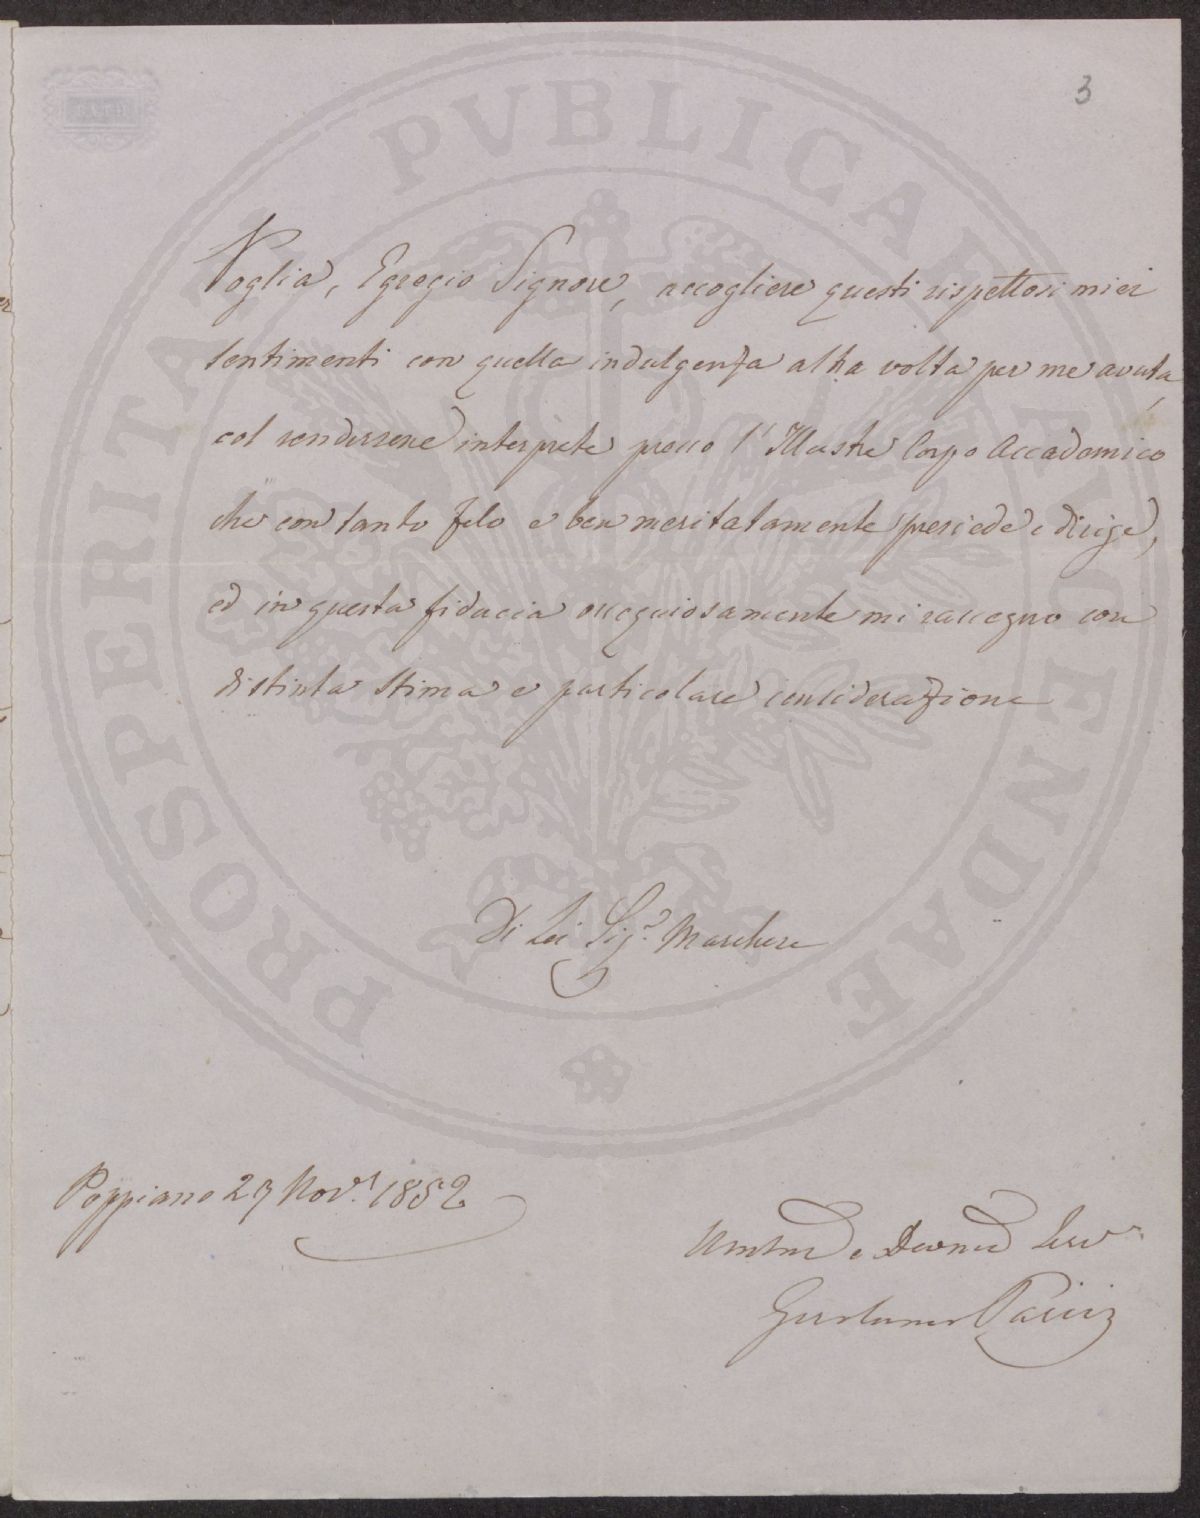 3
PROSPERITATI PVBLICAE AVGENDAE
Voglia, Egregio Signore, accogliere questi rispettosi miei
sentimenti con quella indulgenza altra volta per me avuta,
col rendersene interprete presso l'Illustre Corpo Accademico
che con tanto zelo e ben meritatamente presiede e dirige,
ed in questa fiducia ossequiosamente mi rassegno con
distinta stima e particolare considerazione
Di Lei Sig.r Marchese
Poppiano 27 Nov. 1852
e Devmo Serv.